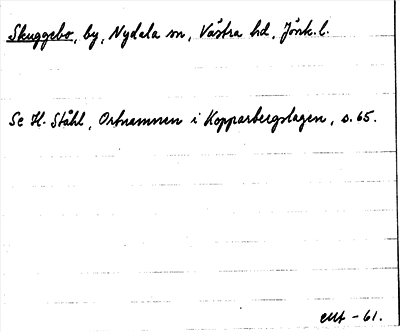 Skuggebo, by, Nydala sn, Västra hd, Jönk. l.
Se H. Ståhl, Ortnamnen i Kopparbergslagen, s. 65.
-61.